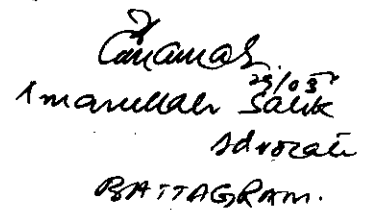 29/05
Amanullah Salik
Advocate
BATTAGRAM.